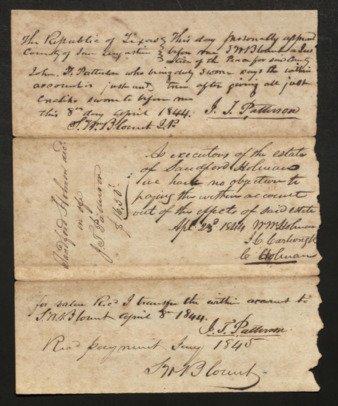 The Republic of Texas This day personally appeared
County of San Augustine before me S W Blount a Jus
tice of the Peace for said County
John T. Patterson who being duly sworn says the within
account is just and true after giving all just
Credits sworn to before me
This 8th day April 1844. J. T. Patterson
S. W. Blount J.P.
As executors of the estate
of Sandford Holman
we have no objection to
paying the within account
out of the effects of said estate
Apl 23d 1844 Wm Holman
J. C. Cartwright
C Holman
Sandford Holman
J T Patterson
for value Recd I transfer the within account to
S W Blount April 8th 1844.
J. T. Patterson
Recd payment Jany 1845
S W Blount.